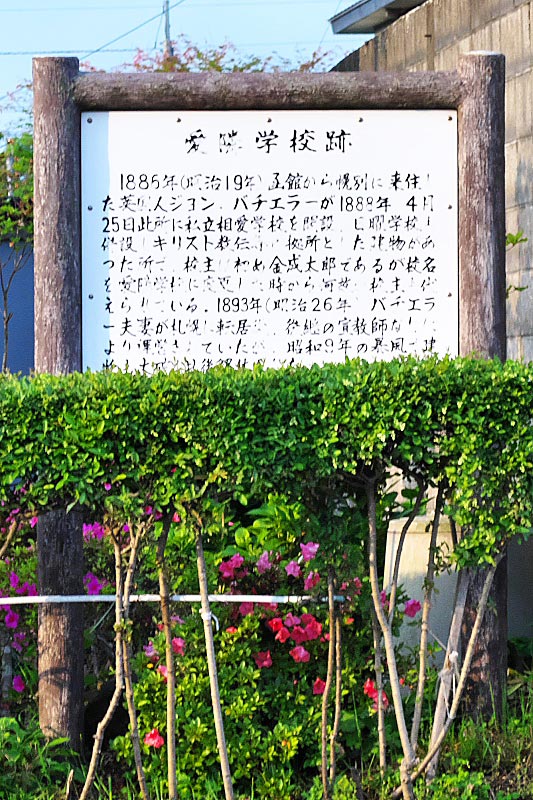 愛隣学校跡
1885年(明治19年)函館から幌別に来住し
た英国人ジョン、バチエラーが1888年4月
25日此所に私立相愛学校を開設、日曜学校も
併設しキリスト教伝導の拠所とした建物があ
った所で、校主は初め金成太郎であるが校名
を愛隣学校に変更した時から 校主も
えられている。1893年(明治26年)バチエラ
ー夫妻が札幌に転居 、後継の宣教師などに
より運営されていたが、昭和9年の暴風で建